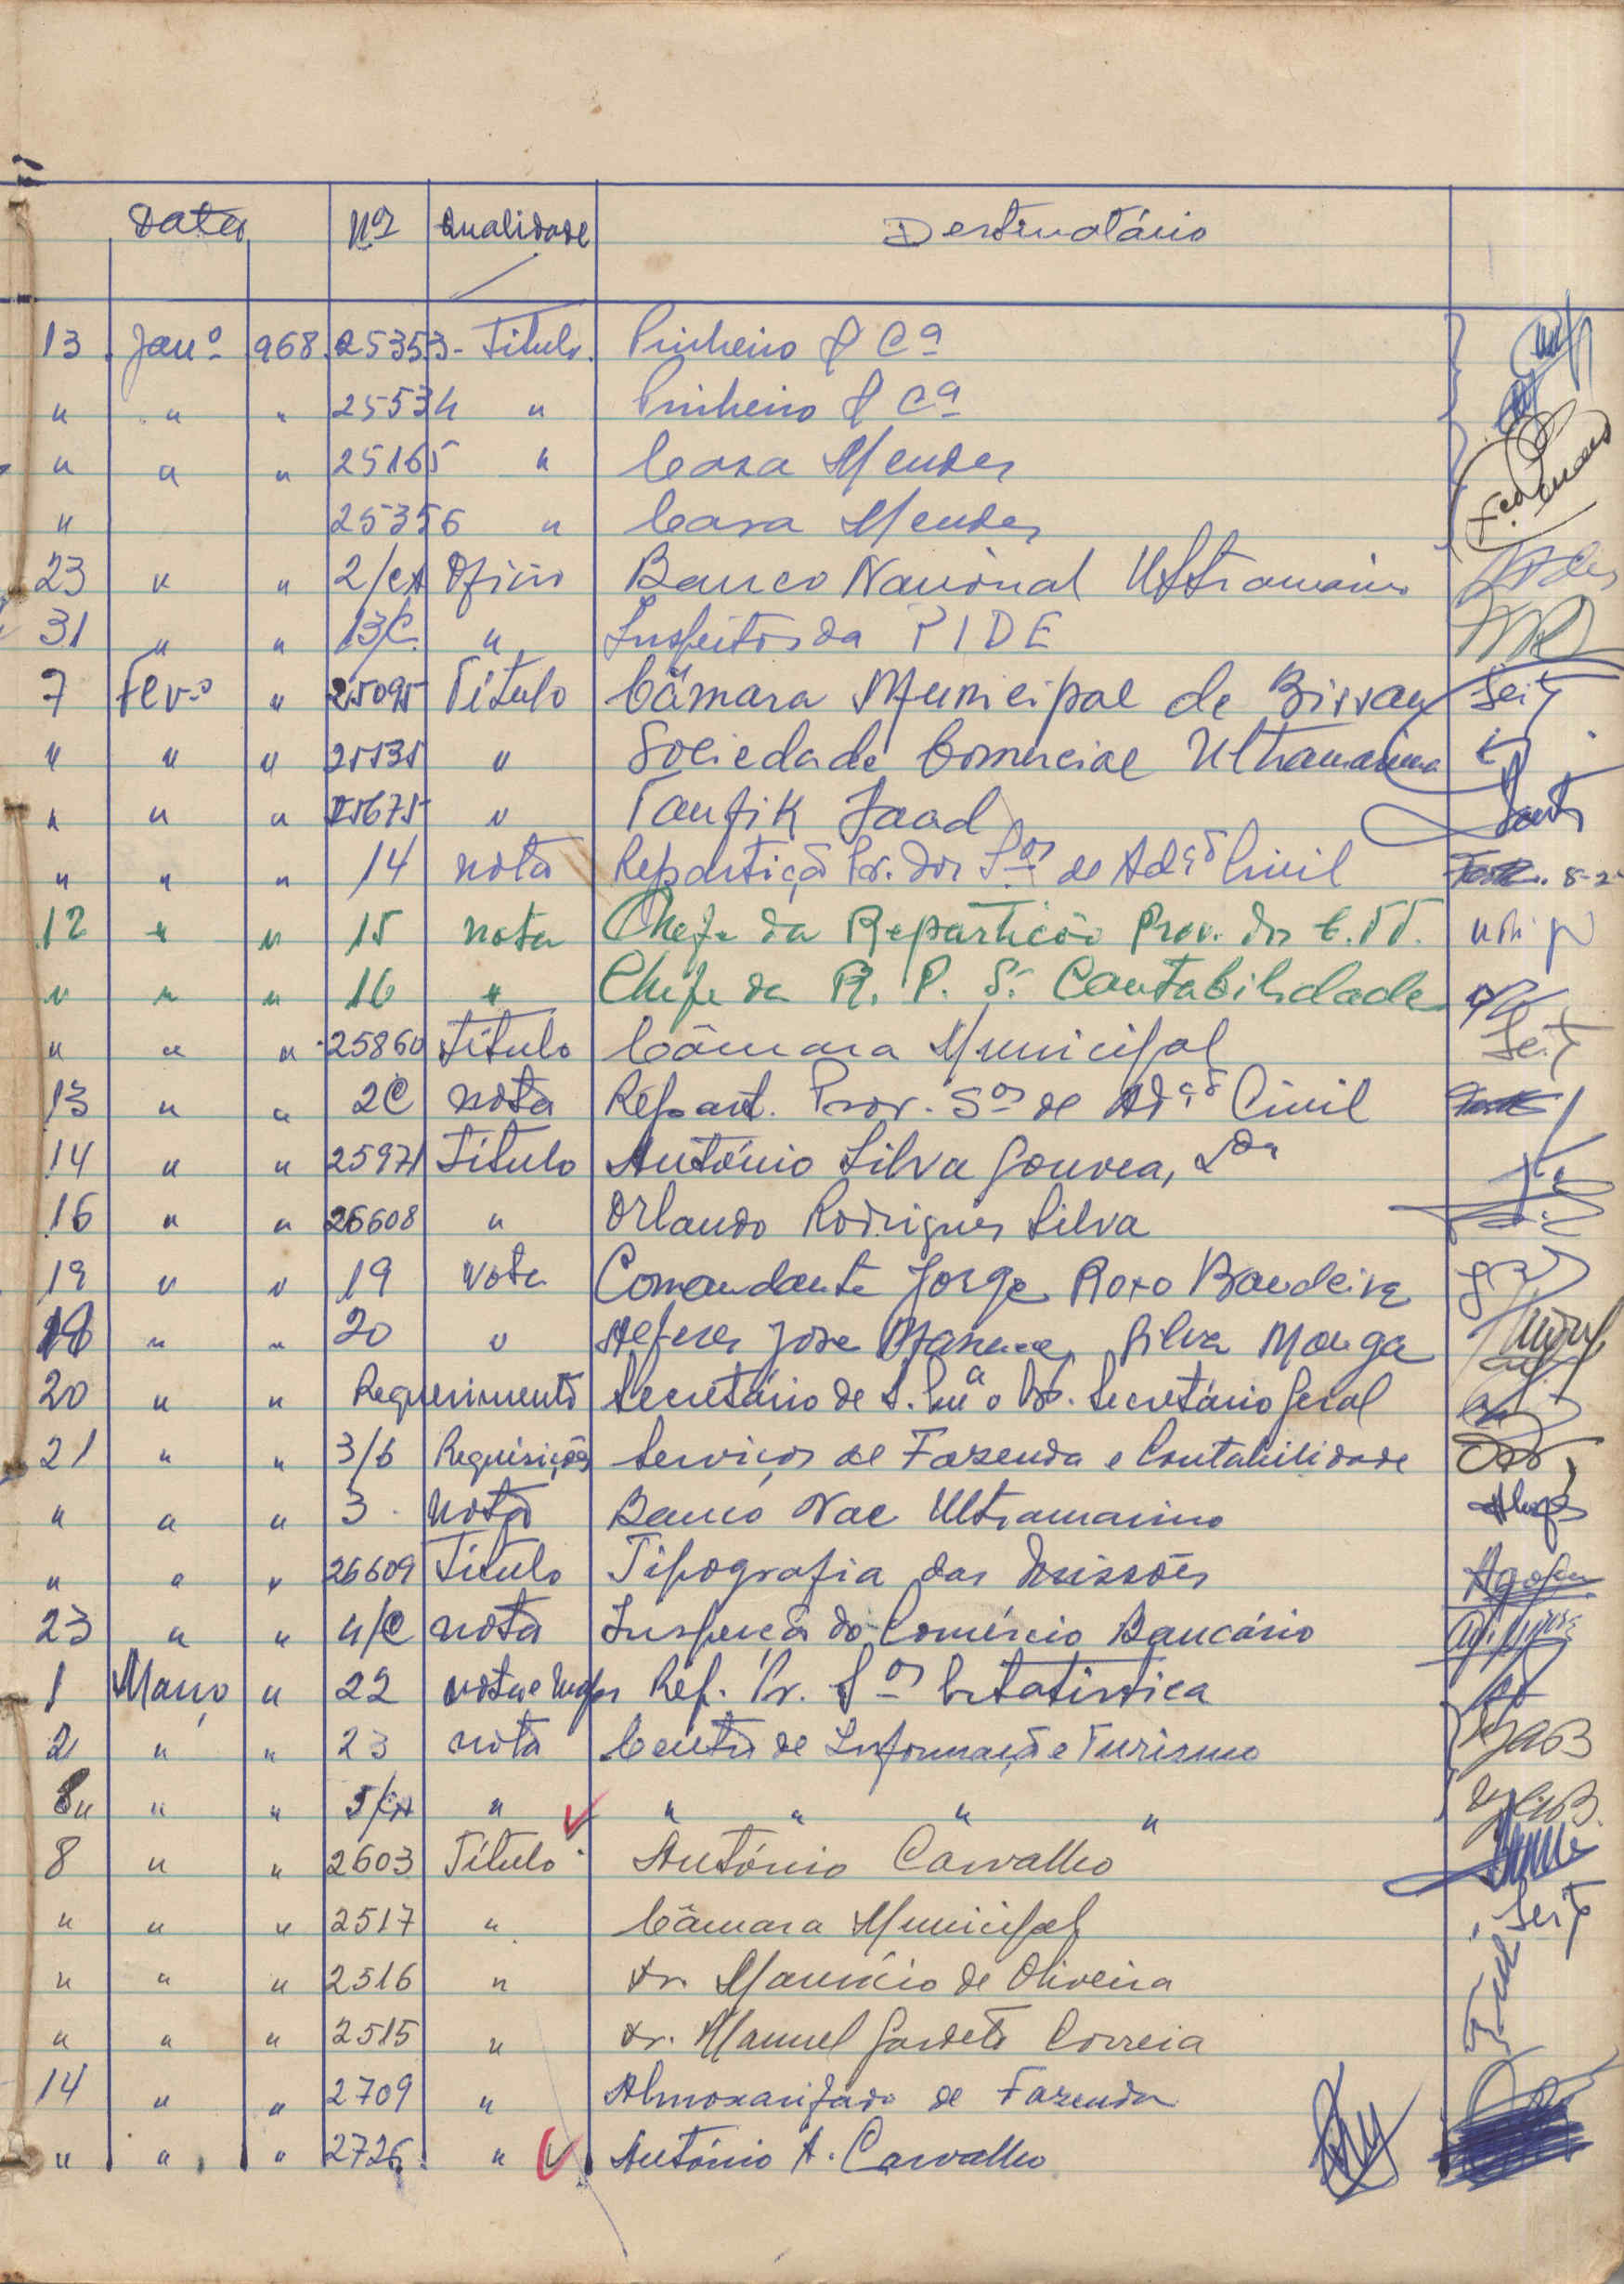 Datas Nos Qualidade Destinatário
13 Janº 968 25353 - Título Pinheiro & Cª
" " " 25534 " Pinheiro & Cª
" " " 25165 " Casa Mendes
" 25356 " Casa Mendes
23 " " 2/CA Ofício Banco Nacional Ultramarino
31 " " 13/C. " Inspeitor da PIDE
7 Fevº " 25095 Título Câmara Municipal de Bissau
" " " 25135 " Sociedade Comercial Ultramarina
" " " 25675 " Taufik Saad
" " " 14 nota Repartiçã Pr. dos Sos de Adção Civil 8-2
12 " " 15 nota Chefe da Repartição Prov. dos C.T.T.
" " " 16 " Chefe da R. P. S. Contabilidade
" " " 25860 Título Câmara Municipal
13 " " 2C nota Repart. Prov. Sos de Adção Civil
14 " " 25971 Título António Silva Gouvea, Lda
16 " " 26608 " Orlando Rodrigues Silva
19 " " 19 Nota Comandante Jorge Roxo Bandeira
" " 20 " Alferes José Silva Monga
20 " " Requerimento Secretário de S. Secretário Geral
21 " " 3/6 Requisição Serviços de Fazenda e Contabilidade
" " " 3 nota Banco Nac Ultramarino
" " " 26609 Título Tipografia das Missões
23 " " 4/C nota Inspeçã do Comércio Bancário
1 Março " 22 nota e Rep. Pr. Sos Estatística
2 " " 23 nota Centro de Informação e Turismo
" " " 5/CA " " " " "
8 " " 2603 Título António Carvalho
" " " 2517 " Câmara Municipal
" " " 2516 " Dr. Maurício de Oliveira
" " " 2515 " Dr. Manuel Gardete Correia
14 " " 2709 " Almoxarifado de Fazenda
" " " 2726 " António A. Carvalho